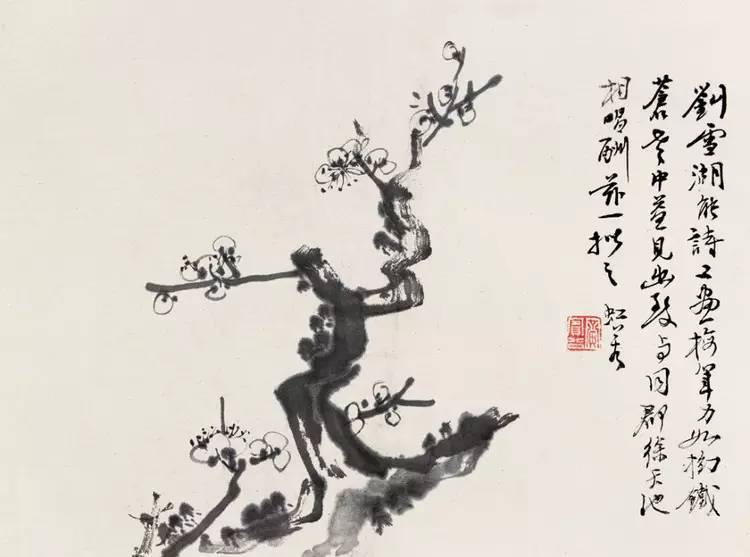 劉雪湖能詩工畫梅筆力如拗鐵
蒼老中益見幽致與同郡徐天池
相唱酬茲一擬之 虹若